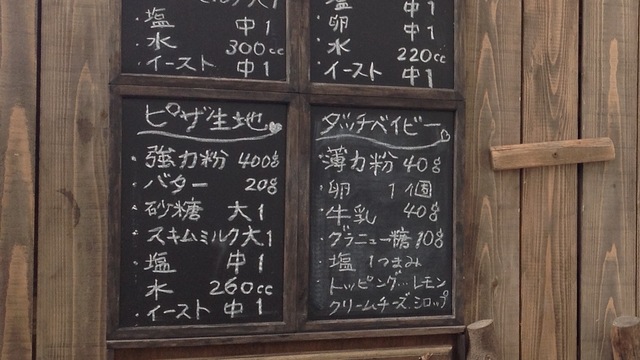 大1
・塩 中1
・水 300cc
・イースト 中1
塩 中1
・卵 中1
・水 220cc
・イースト 中1
ピザ生地
・強力粉 400g
・バター 20g
・砂糖 大1
・スキムミルク大1
・塩 中1
・水 260cc
・イースト 中1
ダッチベイビー
・薄力粉 40g
・卵 1個
・牛乳 40g
・グラニュー糖10g
・塩 1つまみ
・トッピング…レモン
クリームチーズ.シロップ